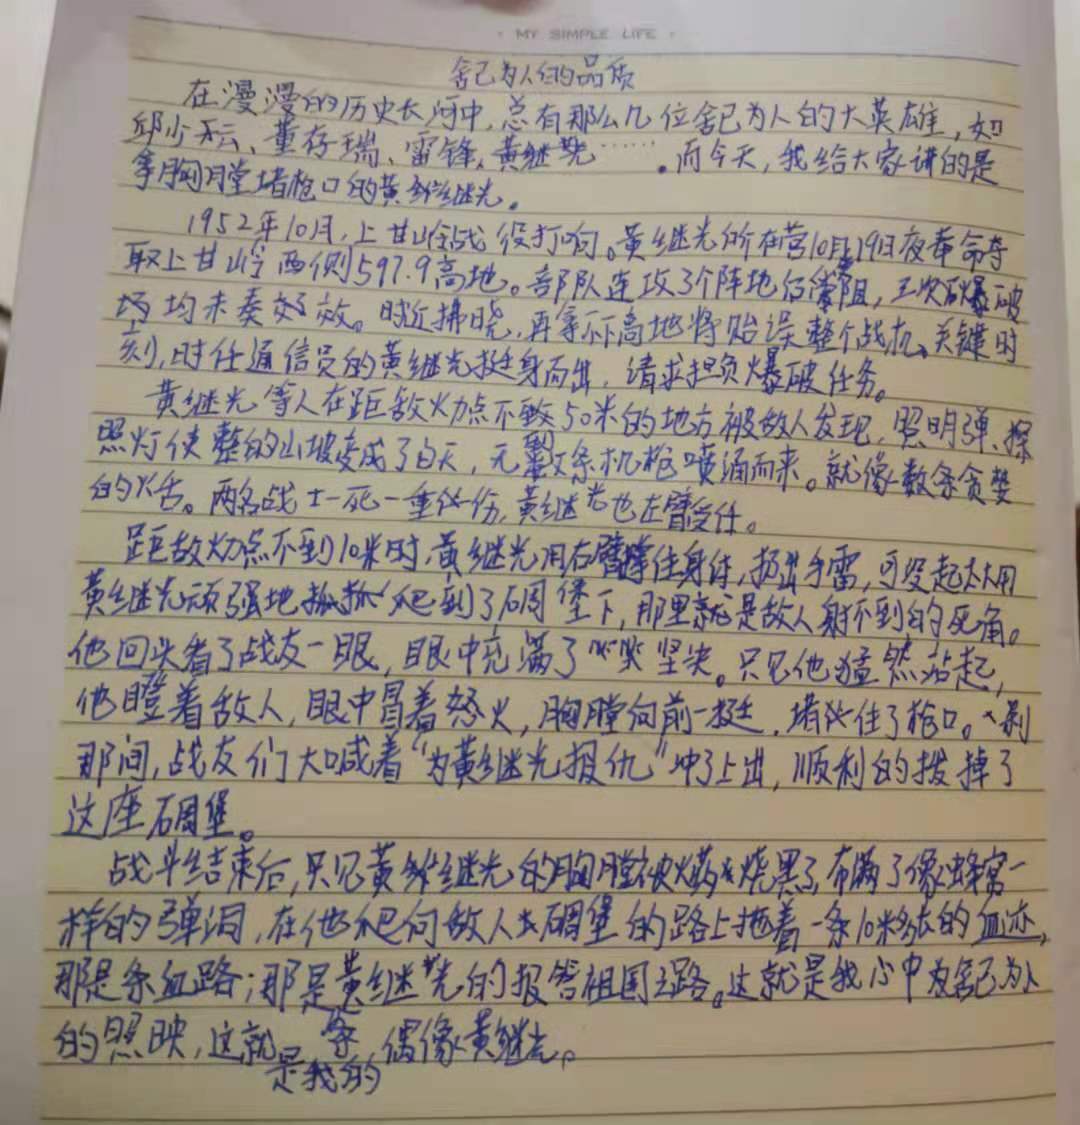 · MY SIMPLE LIFE ·
舍己为人的品质
在漫漫的历史长河中,总有那么几位舍己为人的大英雄,如
邱少云、董存瑞、雷锋,黄继光……。而今天,我给大家讲的是
拿胸膛堵枪口的黄继光。
1952年10月,上甘岭战役打响。黄继光所在营10月19日夜奉命夺
取上甘岭西侧597.9高地。部队连攻3个阵地后受阻,三次爆破
均未奏效。时近拂晓,再拿不下高地将贻误整个战机。关键时
刻,时任通信员的黄继光挺身而出,请求担负爆破任务。
黄继光等人在距敌火力点不到50米的地方被敌人发现,照明弹、探
照灯使整的山坡变成了白天,无数条机枪喷涌而来。就像数条贪婪
的火舌。两名战士一死一重伤,黄继光也左臂受伤。
距敌火力点不到10米时,黄继光用右臂撑住身体,扔出手雷,可没起太大用
黄继光顽强地爬到了碉堡下,那里就是敌人射不到的死角。
他回头看了战友一眼,眼中充满了坚决。只见他猛然站起,
他瞪着敌人,眼中冒着怒火,胸膛向前一挺,堵住了枪口。刹
那间,战友们大喊着“为黄继光报仇”冲了上出,顺利的拔掉了
这座碉堡。
战斗结束后,只见黄继光的胸膛被火药烧黑了,布满了像蜂窝一
样的弹洞,在他爬向敌人碉堡的路上拖着一条10米多长的血迹,
那是条血路;那是黄继光的报答祖国之路。这就是我心中为舍己为人
的照映,这就是我的偶像黄继光。